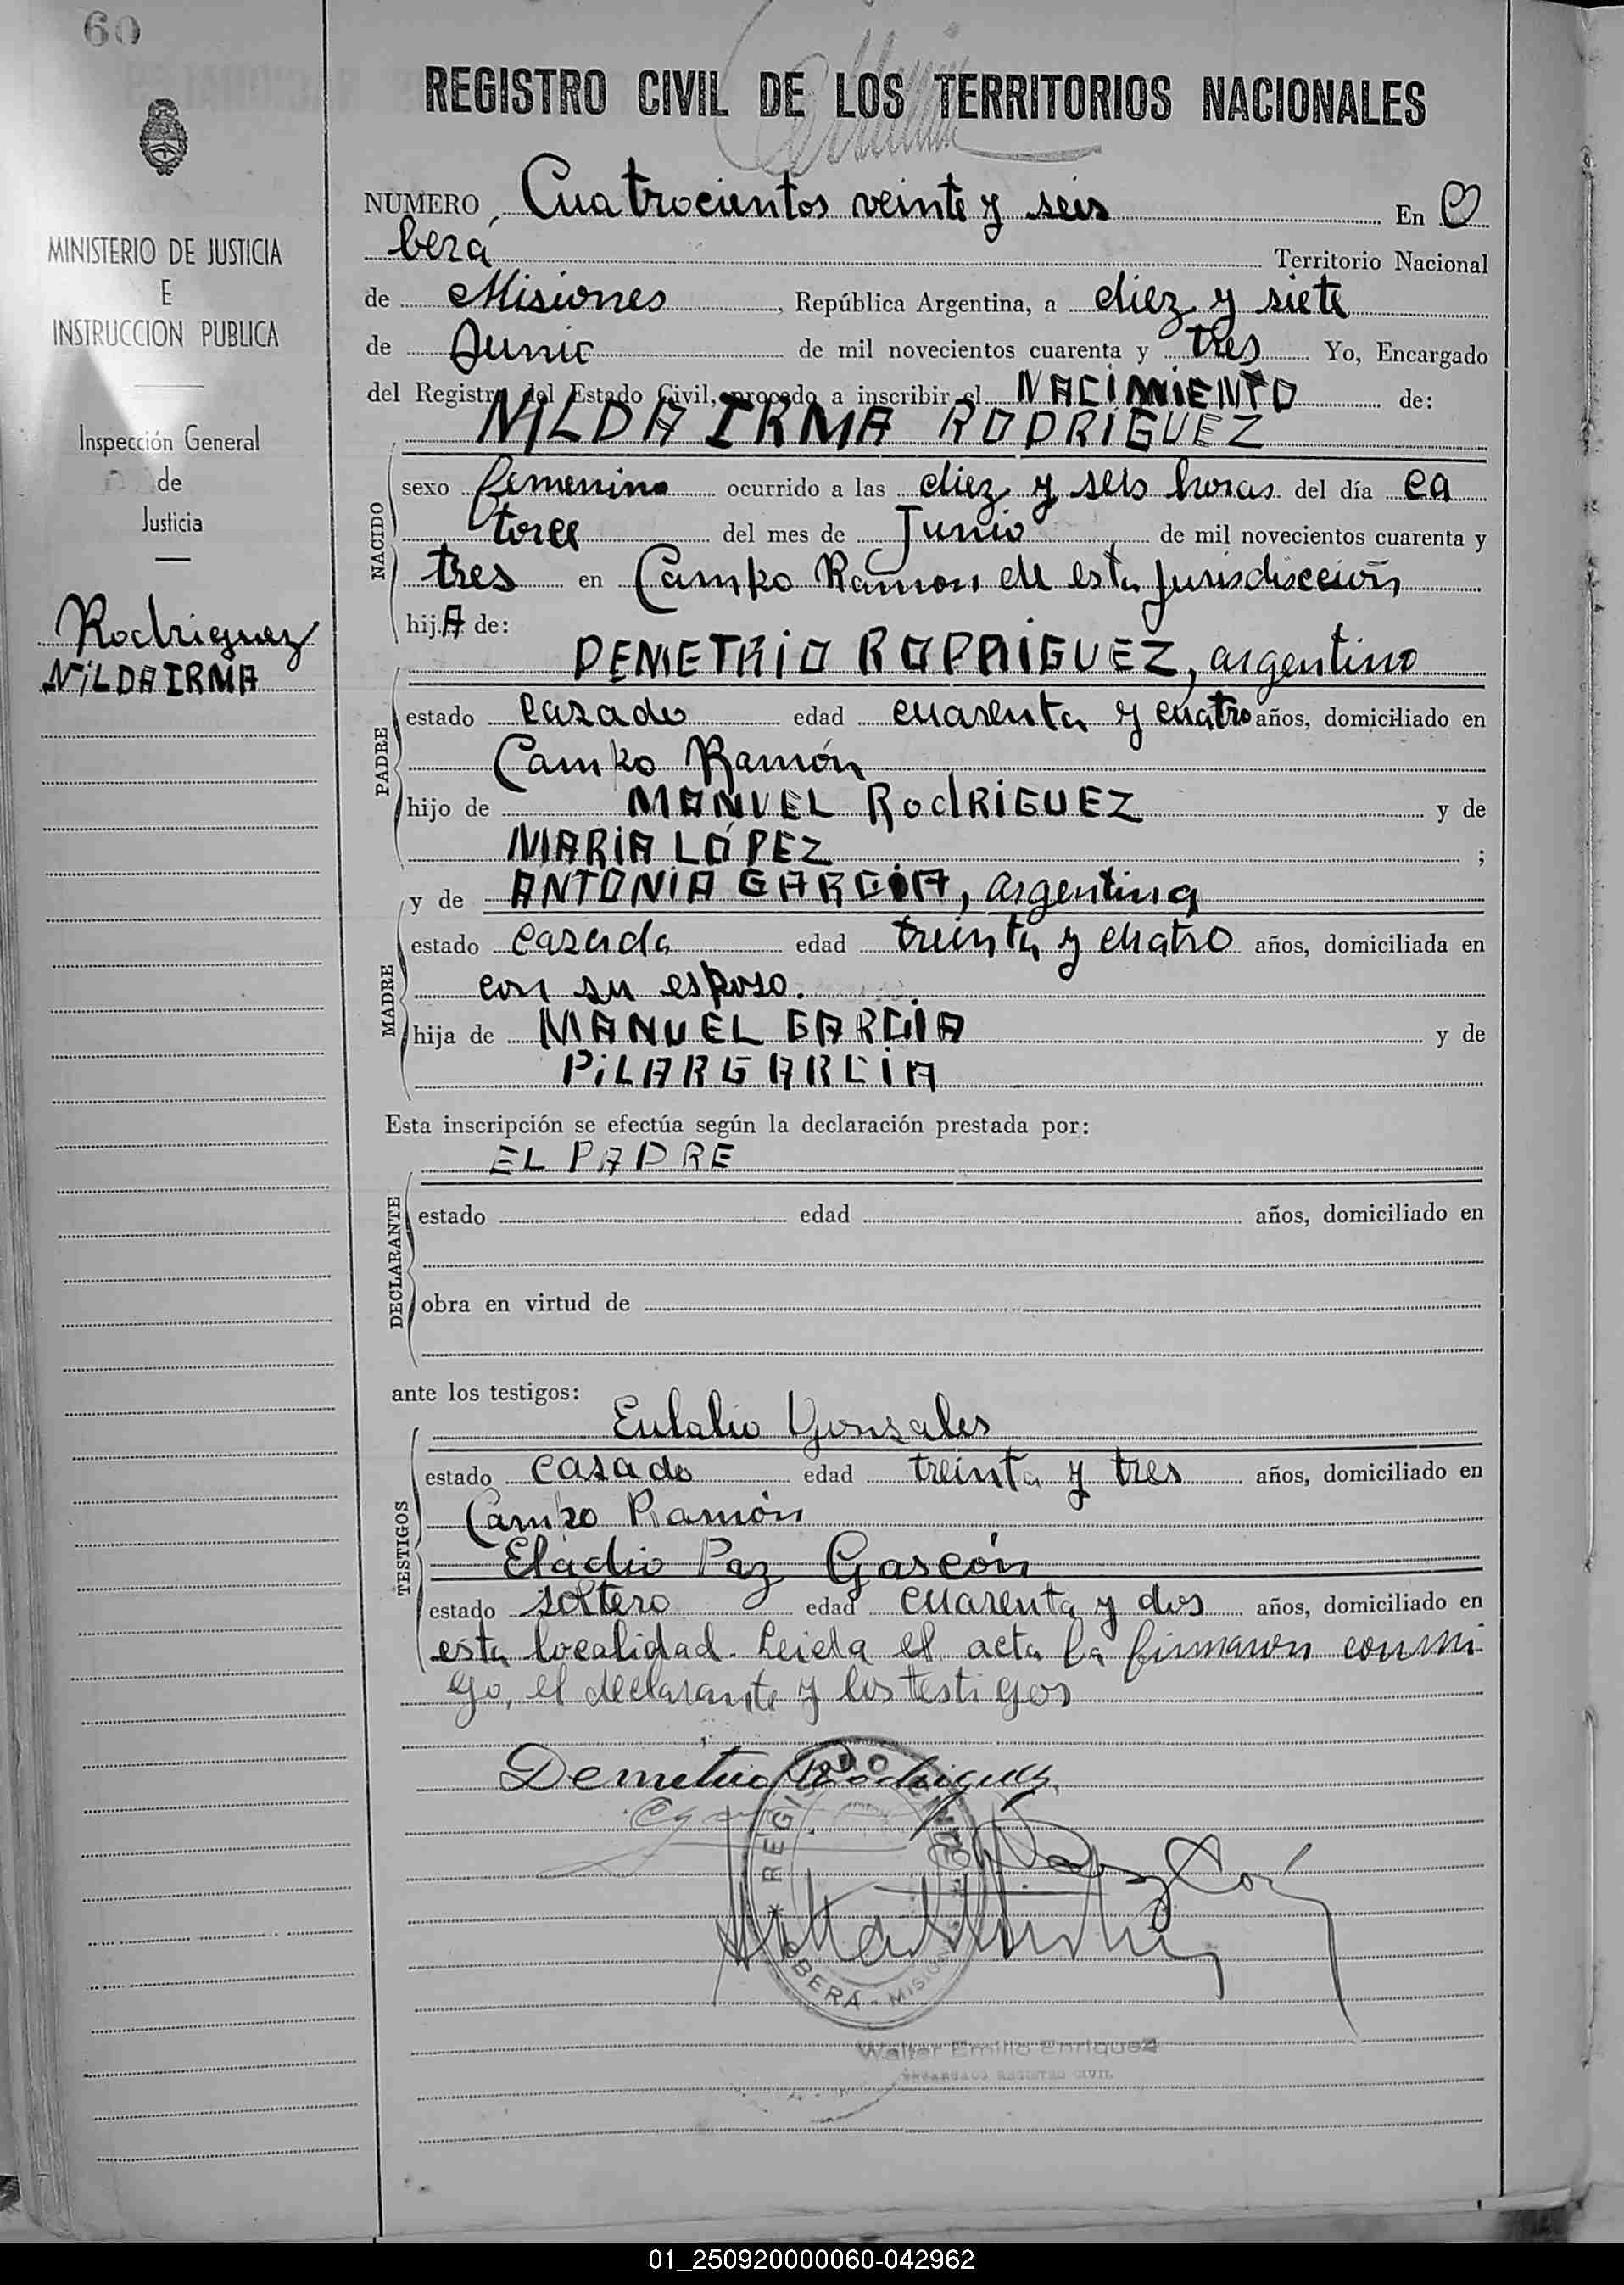 60
REGISTRO CIVIL DE LOS TERRITORIOS NACIONALES
MINISTERIO DE JUSTICIA
E
INSTRUCCION PUBLICA
Inspección General
de
Justicia
Rodriguez
NILDA IRMA
NUMERO Cuatrocientos veinte y seis En O
berá Territorio Nacional
de Misiones, República Argentina, a diez y siete
de Junio de mil novecientos cuarenta y tres Yo, Encargado
del Registro del Estado Civil, procedo a inscribir el NACIMIENTO de:
NILDA IRMA RODRIGUEZ
NACIDO
sexo femenino ocurrido a las diez y seis horas del día ca
torce del mes de Junio de mil novecientos cuarenta y
tres en Campo Ramon de esta jurisdiccion
hijA de:
DEMETRIO RODRIGUEZ, argentino
PADRE
estado casado edad cuarenta y cuatro años, domiciliado en
Campo Ramón
hijo de MANUEL RodRIGUEZ y de
MARIA LÓPEZ ;
y de ANTONIA GARCIA, argentina
MADRE
estado casada edad treinta y cuatro años, domiciliada en
con su esposo.
hija de MANUEL GARCIA y de
PILAR GARCIA
Esta inscripción se efectúa según la declaración prestada por:
EL PADRE
DECLARANTE
estado edad años, domiciliado en
obra en virtud de
ante los testigos:
Eulalio Gonzales
TESTIGOS
estado casado edad treinta y tres años, domiciliado en
Campo Ramón
Eladio Paz Gascón
estado soltero edad cuarenta y dos años, domiciliado en
esta localidad. Leida el acta la firmaron conmi
go, el declarante y los testigos
Demetrio Rodriguez
REGISTRO CIVIL
OBERÁ - MISIONES
Walter Emilio Enriquez
ENCARGADO REGISTRO CIVIL
01_250920000060-042962